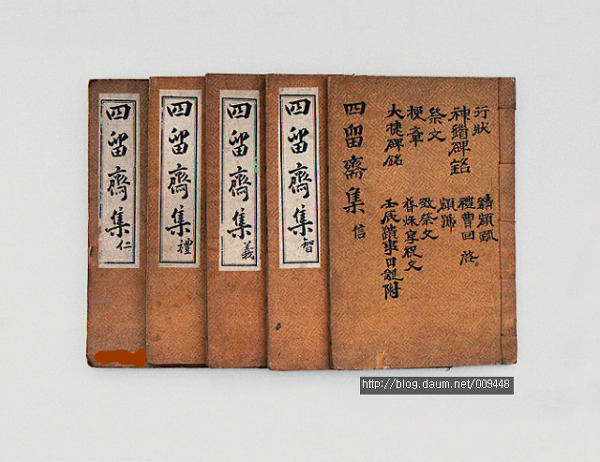 四留齋集 仁
四留齋集 禮
四留齋集 義
四留齋集 智
四留齋集 信
行狀
神道碑銘
祭文
大捷碑銘
請額疏
禮曹回啓
致祭文
春秋享祝文
http://blog.daum.net/009448